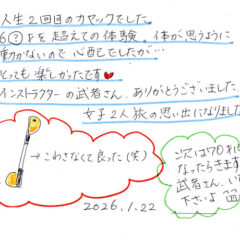 人生2回目のカヤックでした。
6?才を超えての体験。体が思うように
動かないので心配でしたが…
とっても楽しかったです♥
インストラクターの武者さん、ありがとうございました。
女子2人旅の思い出になりました
→こわさなくて良った(笑)
次は70
なったらきます
武者さん、い
下さいよ
2026.1.22